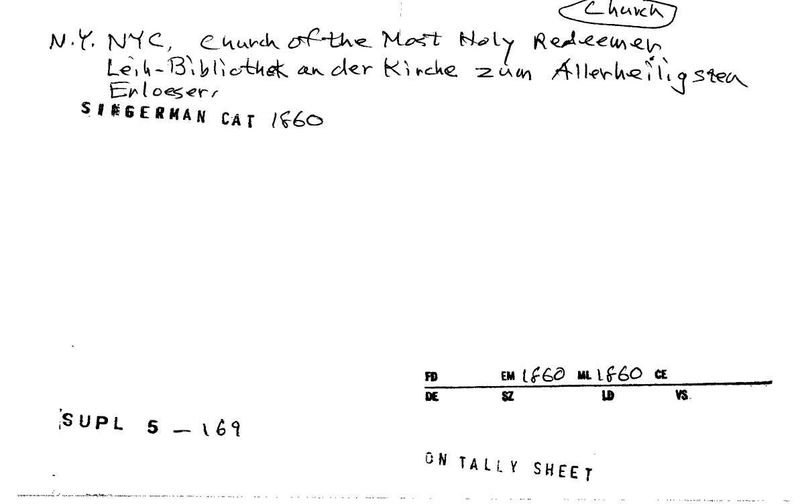 Church
N.Y. NYC, Church of the Most Holy Redeemer,
Leih-Bibliothek an der Kirche zum Allerheiligsten
Erloeser,
SINGERMAN CAT 1860
FD EM 1860 ML 1860 CE
DE SZ LD VS
SUPL 5 - 169
ON TALLY SHEET